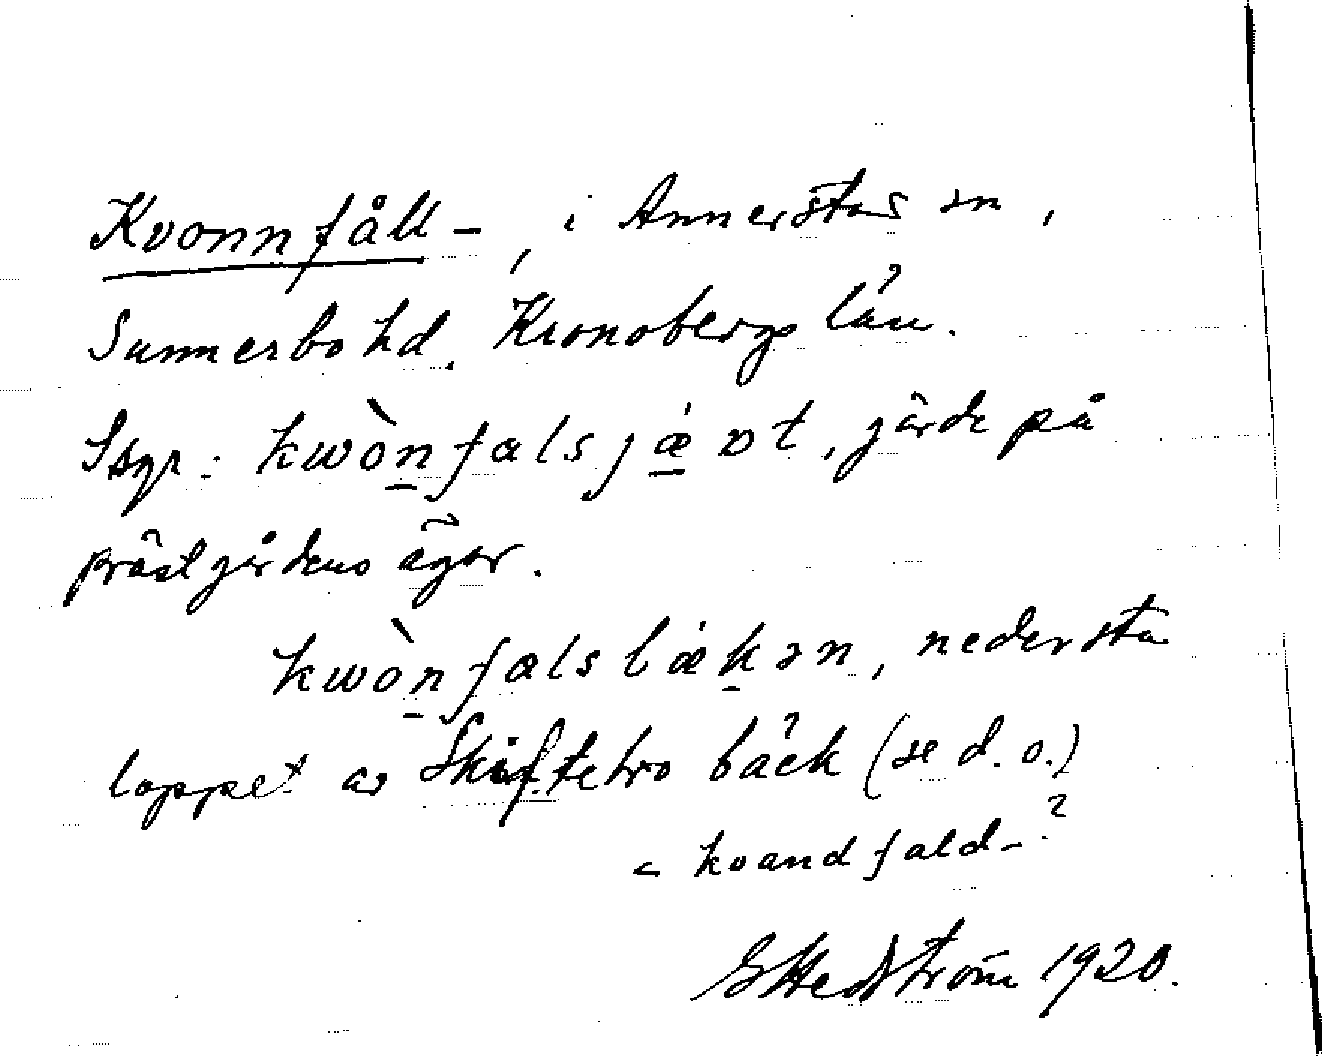 Kvonnfåll-, i Annerstads sn,
Sunnerbo hd. Kronobergs län.
Ssgr: kwònfalsjævt, gärde på
prästgårdens ägor.
kwònfalsbækən, nedersta
loppet av Skiftebro bäck (se d. o.)
< kvandfald-?
G Hedström 1920.